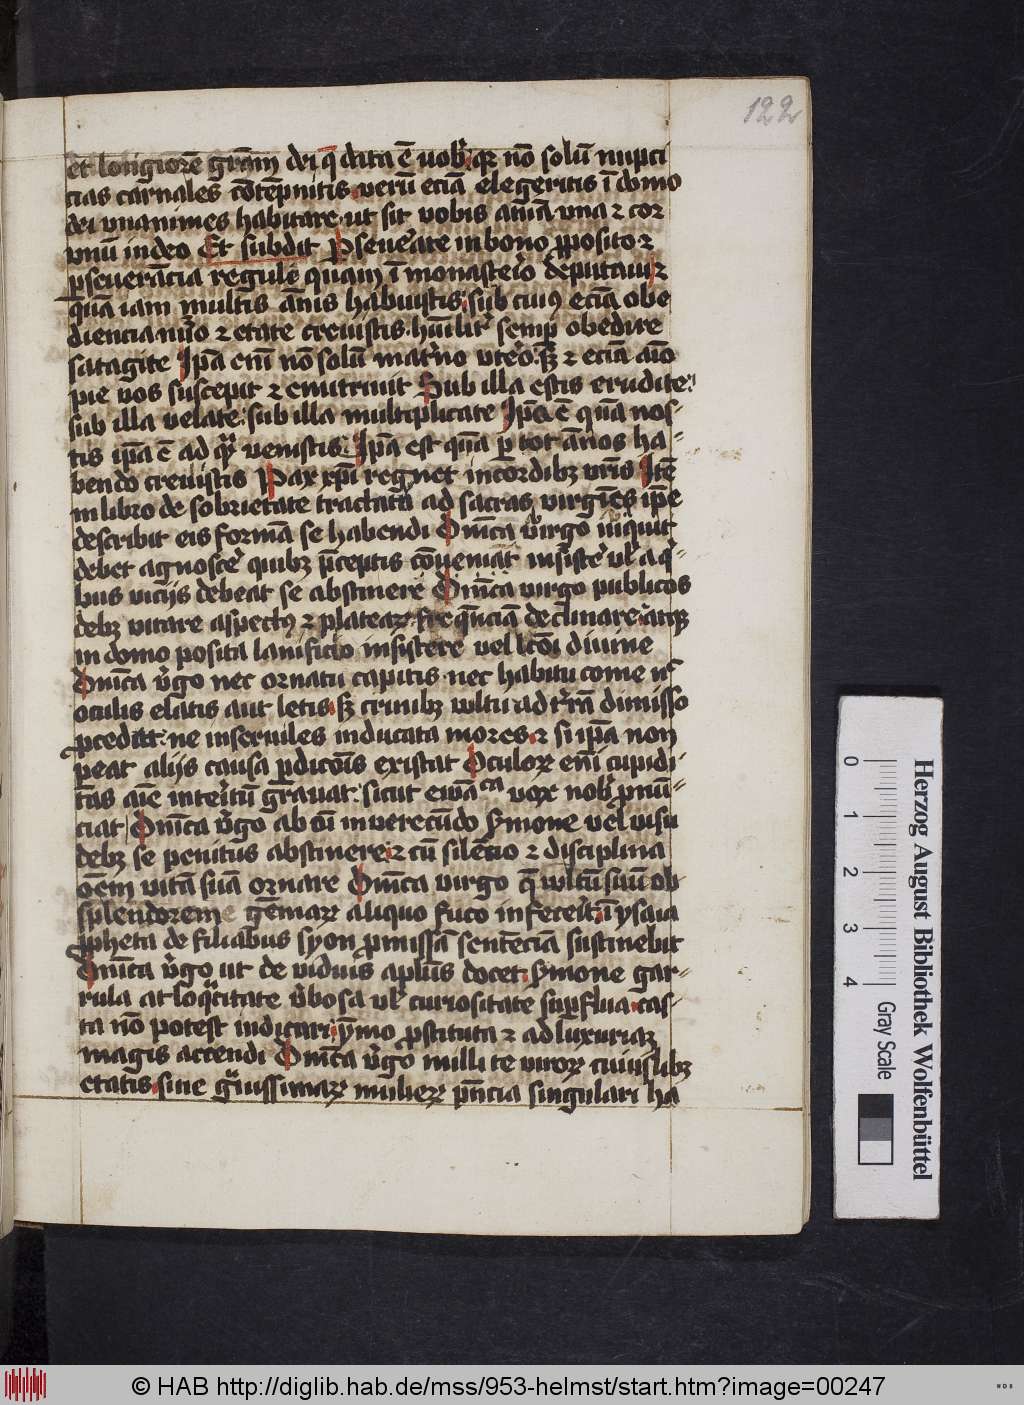 122
et longiorē grām dei q̄ data ē vob̄ qꝛ nō solū nupci
cias carnales cōtēpnitis verū eciā elegeritis ī domo
dei vnanimes habitare ut sit vobis aīa vna ⁊ cor
vnū in deo Et subdit Pseuerate in bono ꝓposito ⁊
ꝑseuerācia regule quam ī monasterio
quā iam multis ānis habuistis sub cuiꝰ eciā obe
diencia nūo ⁊ etate creuistis hūilit̄ semꝑ obedire
satagite Ipā etī nō solū mat̄no vt̄o sꝫ ⁊ eciā aīo
pie vos suscepit ⁊ enutriuit Sub illa estis erudite
sub illa velate sub illa multiplicate Ipā ē quā nos-
tis ipā ē ad quā venistis Ipā est quā ꝑ tot ānos ha-
bendo creuistis Pax xp̄i regnet in cordibꝫ vr̄is Itē
in libro de sobrietate tractatū ad sacras virgīes ipē
describit eis formā se habendi Dn̄ica v̄go inquit
debet agnosc̄e quibꝫ p̄ceptis cōueniat insist̄e vl̄ a q̄-
bus vicijs debeat se abstinere Dn̄ica virgo publicos
debꝫ vitare aspectꝰ ⁊ plateaꝝ freq̄nciā declinare atqꝫ
in domo posita lanificio insistere vel lcōi diuine
Dn̄ica v̄go nec ornatu capitis nec habitu come nc̄
oculis elatis aut letis sꝫ crinibꝫ vultu ad t̄rā dimisso
ꝓcedat ne inseruiles inducata mores ⁊ si ipā non
ꝑeat alijs causa ꝑdicōis existat Oculoꝝ enī cupidi-
tas aīe interitū grauat sicut ewāca vox nob̄ ꝓnū-
ciat Dn̄ica v̄go ab oī inverecūdo s̄mone vel visu
debꝫ se penitus abstinere ⁊ cū silēcio ⁊ disciplina
oēm vitā suā ornare Dn̄ica virgo q̄ vltū suū ob
splendorem gēmaꝝ aliquo fuco infecerit in ysaia
ꝓpheta de filiabus syon ꝓmissā sentēciā sustinebit
Dn̄ica v̄go ut de viduis apl̄us docet s̄mone gar-
rula at loq̄citate v̄bosa vl̄ curiositate suꝑflua cas-
ta nō potest indicari ȳmo ꝓstituta ⁊ ad luxuriaꝫ
magis accendi Dn̄ica v̄go milli te viroꝝ cuiuslibꝫ
etatis siue g̃uissimaꝝ mulieꝝ pn̄cia singulari ha
Herzog August Bibliothek Wolfenbüttel
0 1 2 3 4
Gray Scale
© HAB http://diglib.hab.de/mss/953-helmst/start.htm?image=00247